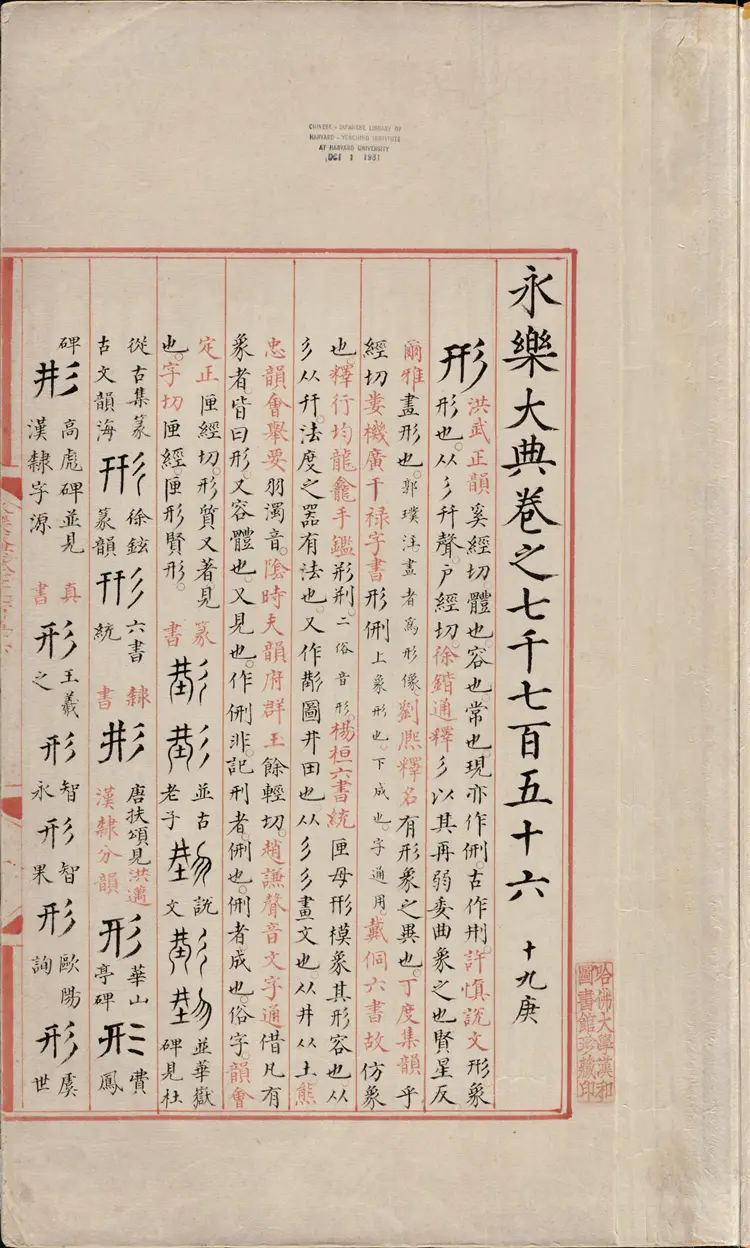 CHINESE - JAPANESE LIBRARY OF
HARVARD - YENCHING INSTITUTE
AT HARVARD UNIVERSITY
OCT 1 1931
永樂大典卷之七千七百五十六 十九庚
形
洪武正韻奚經切體也。容也。常也。現亦作侀。古作㓝。許慎說文形象
形也。从彡幵聲。戶經切。徐鍇通釋彡以其再弱委曲象之也賢星反
爾雅畫形也。郭璞注。畫者為形像。劉熙釋名有形象之異也。丁度集韻乎
經切婁機廣干祿字書形侀上象形也。下成也。字通用。戴侗六書故仿象
也。釋行均龍龕手鑑形㓝。二俗音形。楊桓六書統匣母形模象其形容也从
彡从幵。法度之器有法也。又作圖井田也从彡彡畫文也从井从土熊
忠韻會舉要羽濁音。陰時夫韻府群玉餘輕切。趙謙聲音文字通借凡有
象者。皆曰形。又容體也。又見也。作侀非。記刑者。侀也。侀者成也。俗字。韻會
定正匣經切。形質又著見
也。字切匣經。匣形賢形。
篆書
並古老子
說文
並華嶽碑見杜
從古集篆古文韻海
形
徐鉉篆韻
形
六書統
隸書
形
唐扶頌見洪邁漢隸分韻
形
華山亭碑
形
費鳳
碑
形
高彪碑並見漢隸字源
真書
形
王羲之
形
智永
形
智果
形
歐陽詢
形
虞世
哈佛大學漢和
圖書館珍藏印